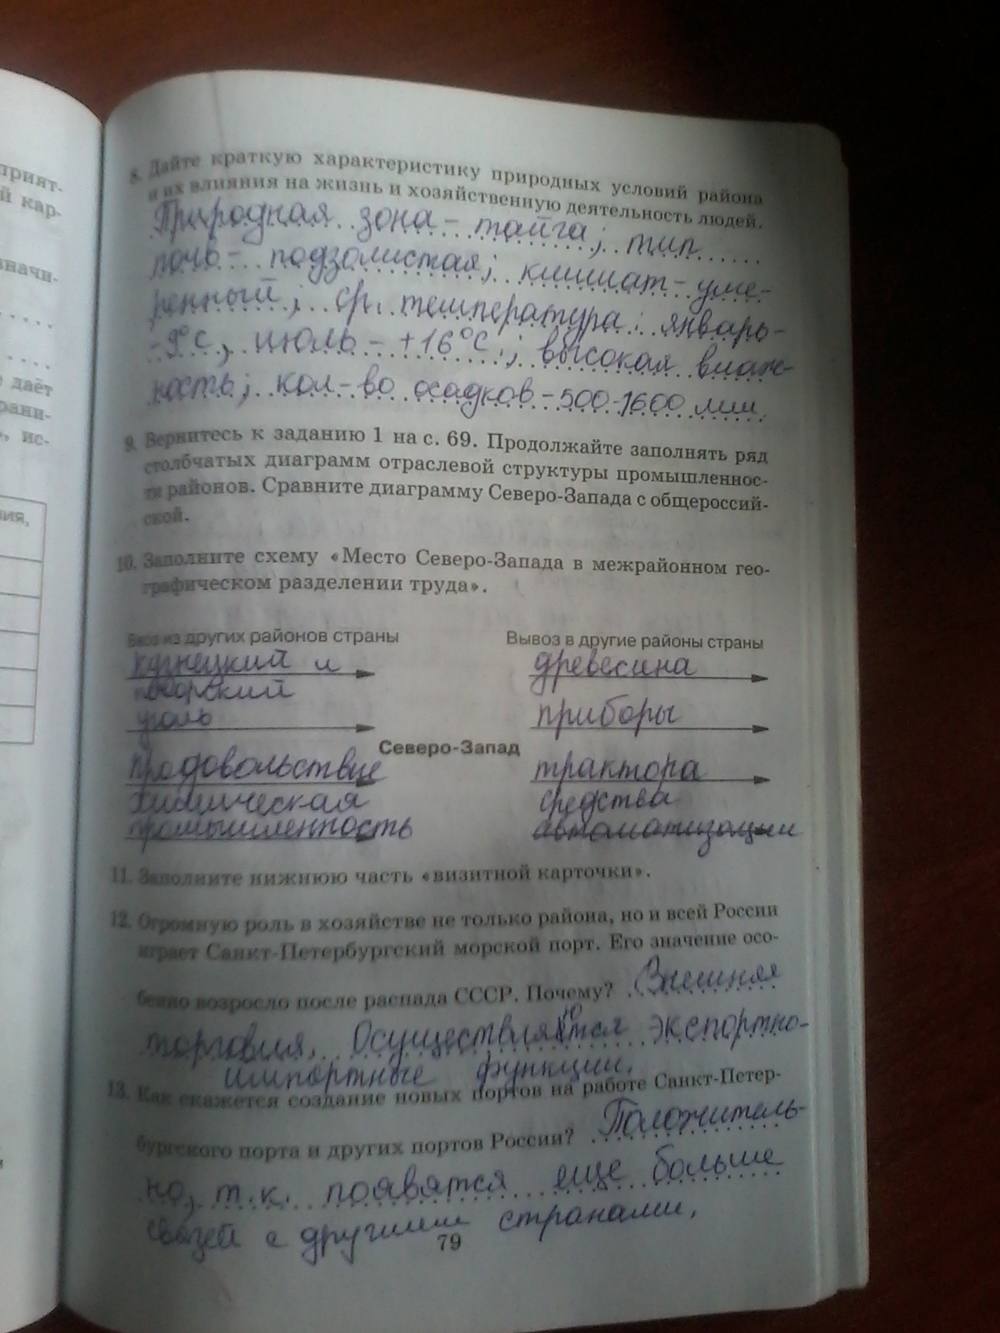 прият-
й кар-
значи-
даёт
рани-
ис-
ния,
8. Дайте краткую характеристику природных условий района
и их влияния на жизнь и хозяйственную деятельность людей.
Природная зона – тайга; тип
почв – подзолистая; климат – уме-
ренный; ср. температура: январь-
-9°С, июль – +16°С; высокая влаж-
ность; кол-во осадков – 500-1600 мм.
9. Вернитесь к заданию 1 на с. 69. Продолжайте заполнять ряд
столбчатых диаграмм отраслевой структуры промышленнос-
ти районов. Сравните диаграмму Северо-Запада с общероссий-
ской.
10. Заполните схему «Место Северо-Запада в межрайонном гео-
графическом разделении труда».
Ввоз из других районов страны Вывоз в другие районы страны
кузнецкий и древесина
печорский
уголь приборы
Северо-Запад
продовольствие трактора
химическая средства
промышленность автоматизации
11. Заполните нижнюю часть «визитной карточки».
12. Огромную роль в хозяйстве не только района, но и всей России
играет Санкт-Петербургский морской порт. Его значение осо-
бенно возросло после распада СССР. Почему? Внешняя
торговля. Осуществляются экспортно-
импортные функции.
13. Как скажется создание новых портов на работе Санкт-Петер-
бургского порта и других портов России? Положитель-
но, т.к. появятся еще больше
связей с другими странами.
79